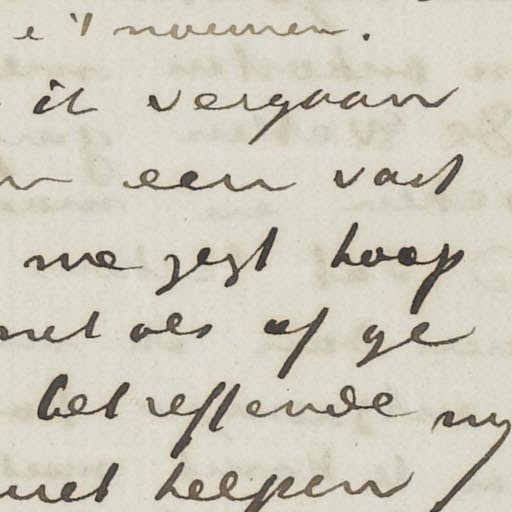 e 't noemen.
it vergaan
een vast
me zegt hoop
net als of ge
betreffende my
net helpen